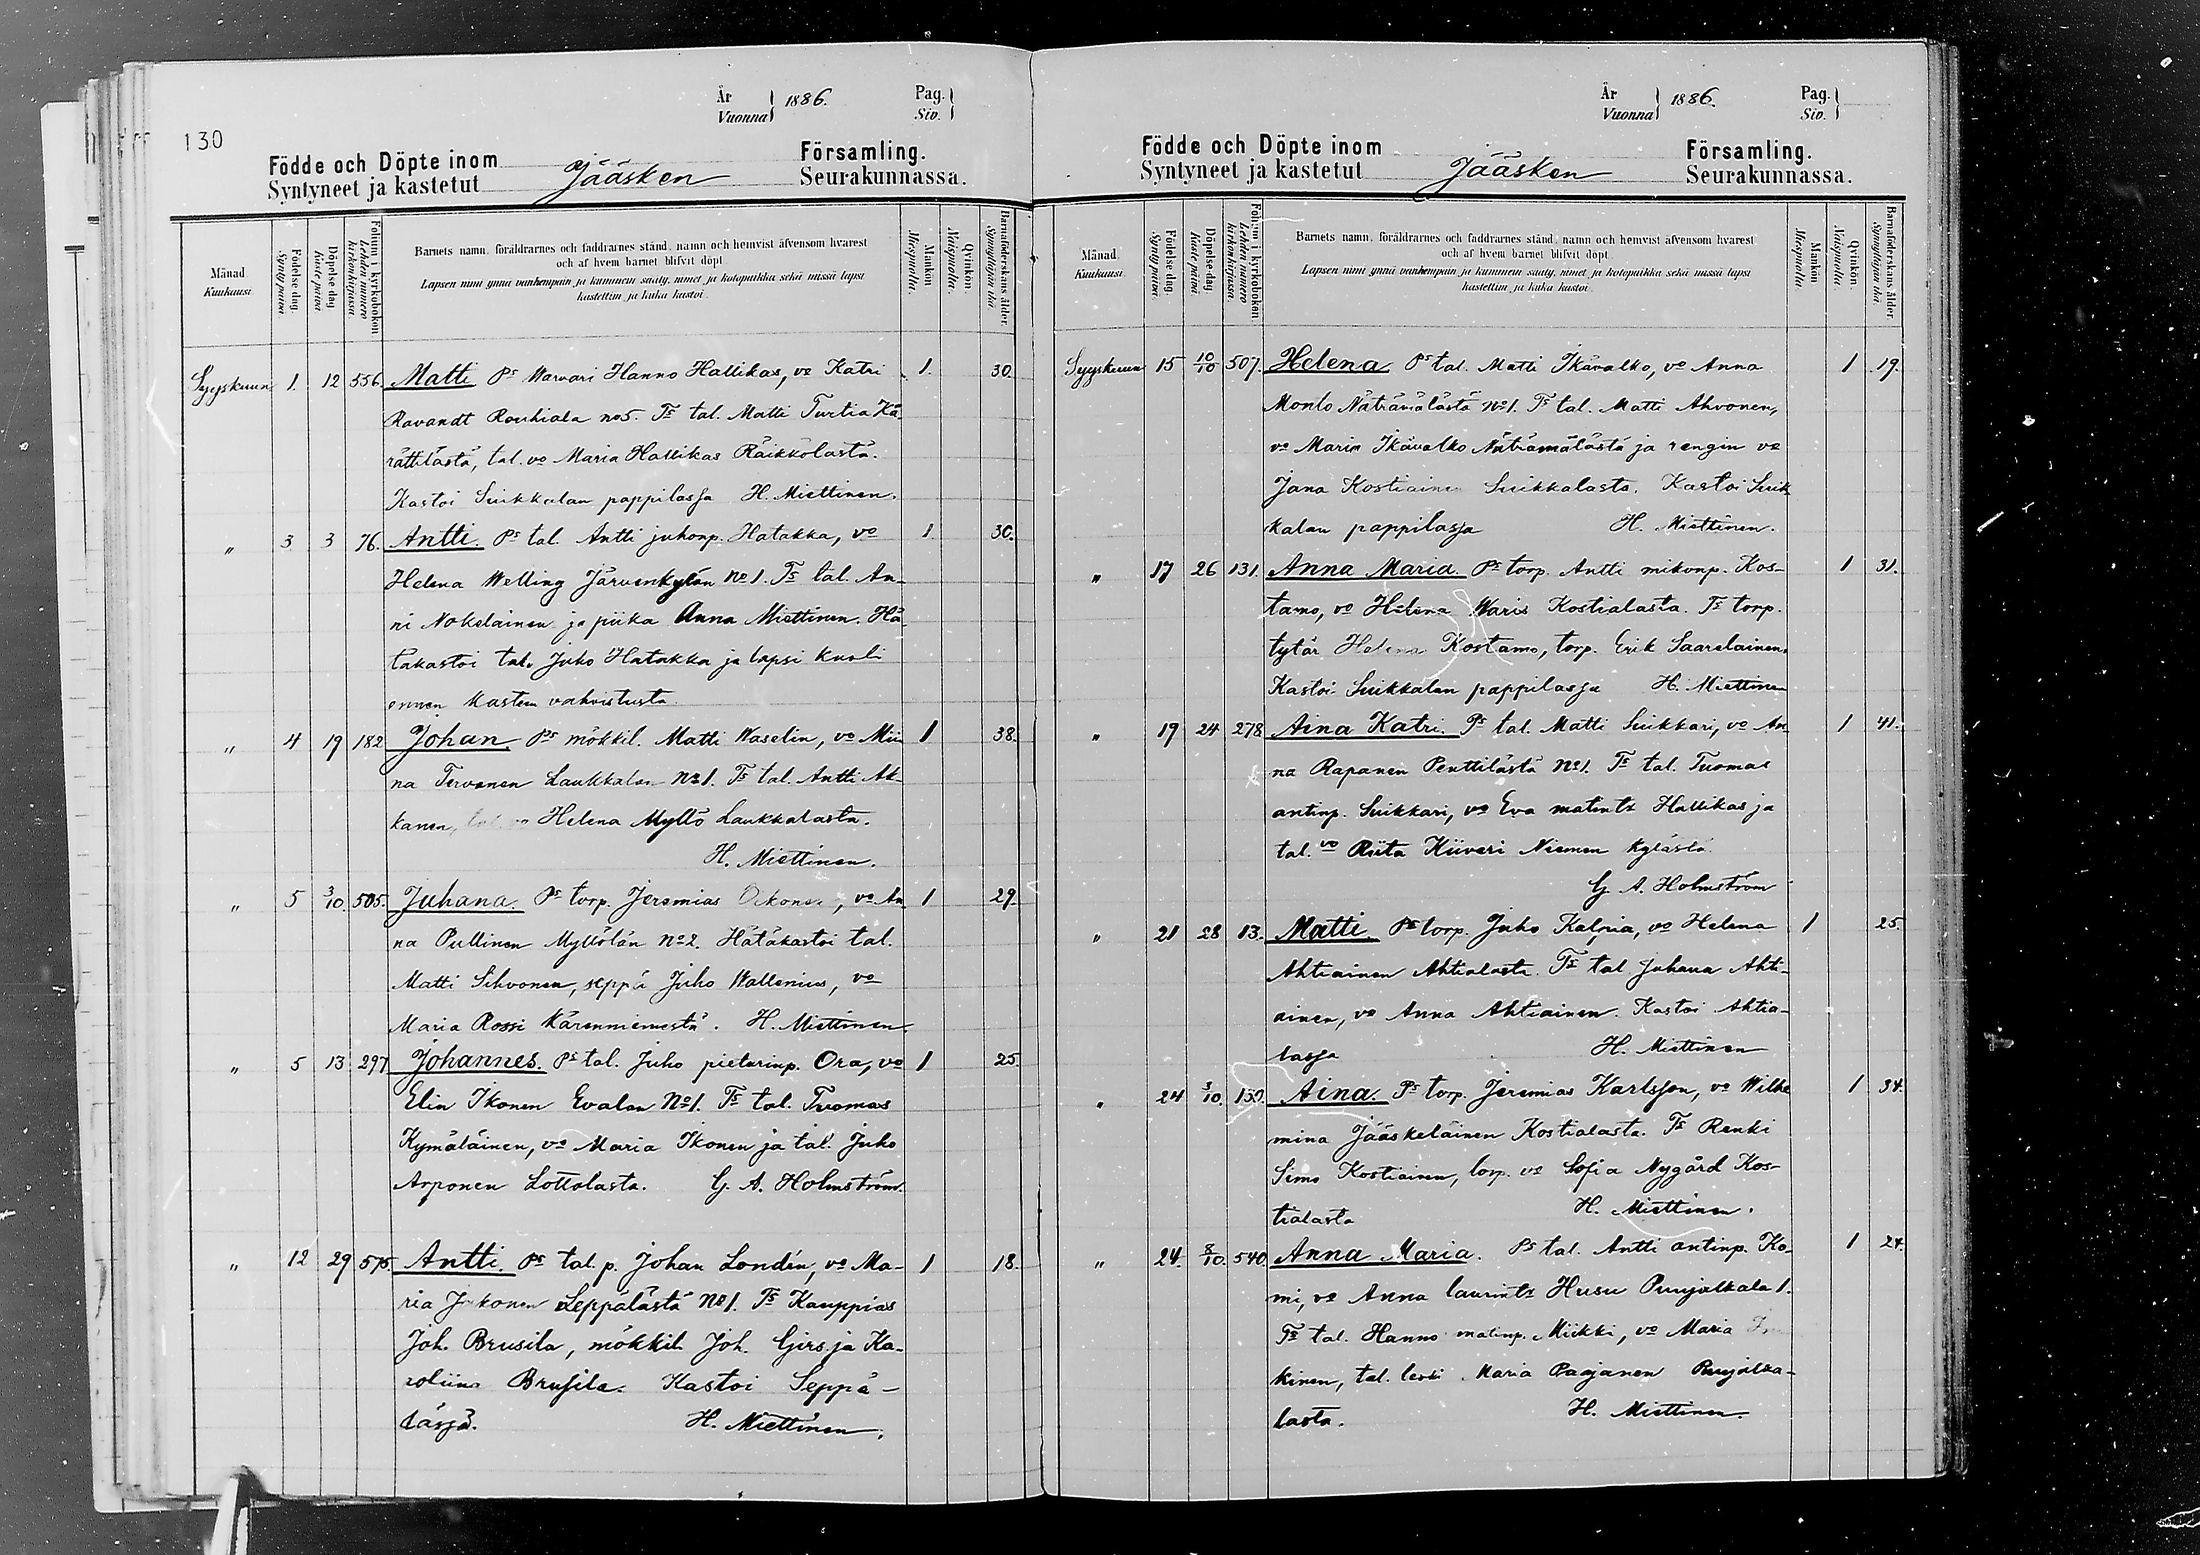 130
År
Vuonna
1886.
Pag.
Siv.
Födde och Döpte inom
Syntyneet ja kastetut
Jääsken
Församling.
Seurakunnassa.
Månad.
Kuukausi
Födelse dag.
Synty päivä
Döpelse dag
Kaste päivä
Folium i kyrkoboken
Lehden numero kirkonkirjassa.
Barnets namn, föräldrarnes och faddrarnes stånd, namn och hemvist äfvensom hvarest
och af hvem barnet blifvit döpt.
Lapsen nimi ynnä vanhempain ja kummein sääty, nimet ja kotopaikka sekä missä lapsi
kastettiin ja kuka kastoi.
Mankön
Miespuolia.
Qvinkön.
Naispuolia.
Barnaföderskans ålder.
Synnyttäjän ikä.
Syyskuun 1. 12 556. Matti Ps Warvari Hanno Hallikas, vo Katri 1. 30.
Ravandt Rouhiala no5. Ts tal. Matti Turtia Kä-
rättilästä, tal. vo Maria Hallikas Räikkölästä.
Kastoi Suikkalan pappilassa H. Miettinen.
" 3 3 76. Antti. Ps tal. Antti juhonp. Hatakka, vo 1 30.
Helena Welling Järvenkylän No 1. Ts tal. An-
ni Nokelainen ja piika Anna Miettinen. Hä
täkastoi tal. Juho Hatakka ja lapsi kuoli
ennen kasteen vahvistusta.
" 4 19 182 Johan. Ps mökkil. Matti Waselin, vo Mii 1 38.
na Tervonen Laukkalan No1. Ts tal. Antti Ak-
kanen, Helena Myllö Laukkalasta.
H. Miettinen.
" 5 3/10. 505. Juhana. Ps torp. Jeremias vo An 1 29.
na Pullinen Myllölän No2. Hätäkastoi tal.
Matti Sihvonen, seppä Juho Wallenius, vo
Maria Rossi Kärenniemestä. H. Miettinen
" 5 13 297 Johannes. Ps tal. Juho pietarinp. Ora, vo 1 25
Elin Ikonen Evalan No1. Ts tal. Tuomas
Kymäläinen, vo Maria Ikonen ja tal. Juho
Arponen Lottolasta. G. A. Holmström.
" 12 29 575. Antti. Ps tal. p. Johan Londén, vo Ma- 1 18.
ria Leppälästä No1. Ts Kauppias
Joh. Brusila, mökkil. Joh. Girs ja Ka-
roliina Brusila. Kastoi Seppä-
lässä. H. Miettinen.
År
Vuonna
1886.
Pag.
Siv.
Födde och Döpte inom
Syntyneet ja kastetut
Jääsken
Församling.
Seurakunnassa.
Månad
Kuukausi
Födelse dag.
Synty päivä.
Döpelse dag
Kaste päivä.
Folium i kyrkoboken
Lehden numero kirkonkirjassa.
Barnets namn, föräldrarnes och faddrarnes stånd, namn och hemvist äfvensom hvarest
och af hvem barnet blifvit döpt.
Lapsen nimi ynnä vanhempain ja kummein sääty, nimet ja kotopaikka sekä missä lapsi
kastettiin ja kuka kastoi.
Mankön
Miespuolia.
Qvinkön.
Naispuolia.
Barnaföderskans ålder
Synnyttäjän ikä.
Syyskuun 15 10/10 507. Helena Ps tal. Matti Ikävalko, vo Anna 1 19.
Monto Näträmälästä No1. Ts tal. Matti Ahvonen,
vo Maria Ikävalko Näträmälästä ja rengin vo
Jana Kostiainen Suikkalasta. Kastoi Suik
kalan pappilassa H. Miettinen.
" 17 26 131. Anna Maria. Ps torp. Antti mikonp. Kos- 1 31.
tamo, vo Helena Waris Kostialasta. Ts torp.
tytär Helena Kostamo, torp. Erik Saarelainen.
Kastoi Suikkalan pappilassa H. Miettinen
" 19 24 278 Aina Katri. Ps tal. Matti Suikkari, vo An- 1 41.
na Rapanen Penttilästä No1. Ts tal. Tuomas
antinp. Suikkari, vo Eva matintr Hallikas ja
tal. vo Riita Kiiveri Niemen kylästä.
G. A. Holmström
" 21 28 13. Matti. Ps torp. Juho Kalpia, vo Helena 1 25.
Ahtiainen Ahtialasta. Ts tal Juhana Ahti-
ainen, vo Anna Ahtiainen. Kastoi Ahtia-
lassa H. Miettinen
" 24 3/10. 150. Aina. Ps torp. Jeremias Karlsson, vo Wilhe 1 34.
mina Jääskeläinen Kostialasta. Ts Renki
Simo Kostiainen, torp. vo Sofia Nygård Kos-
tialasta H. Miettinen.
" 24. 8/10. 540. Anna Maria. Ps tal. Antti antinp. Ko- 1 24.
mi, vo Anna laurintr Husu Puujalkala 1.
Ts tal. Hanno matinp. Miikki, vo Maria
kinen, tal. leski Maria Paajanen Puujalka-
lasta. H. Miettinen.